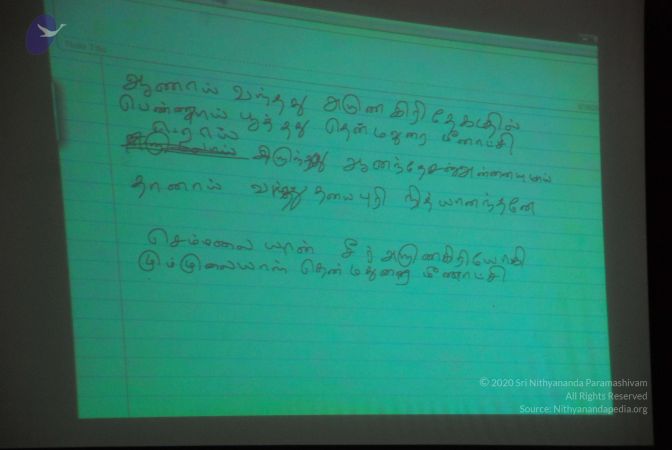 ஆணாய் வந்தது அருணகிரி தேகத்தில்
பெண்ணாய் பூத்தது தென்மதுரை மீனாட்சி
இருந்தது
தானாய் வந்து தயைபுரி நித்யானந்தனே
செம்மலை யான் சீர் அருணகிரியோகி
மும்முலையாள் தென்மதுரை மீனாட்சி
© 2020 Sri Nithyananda Paramashivam
All Rights Reserved
Source: Nithyanandapedia.org